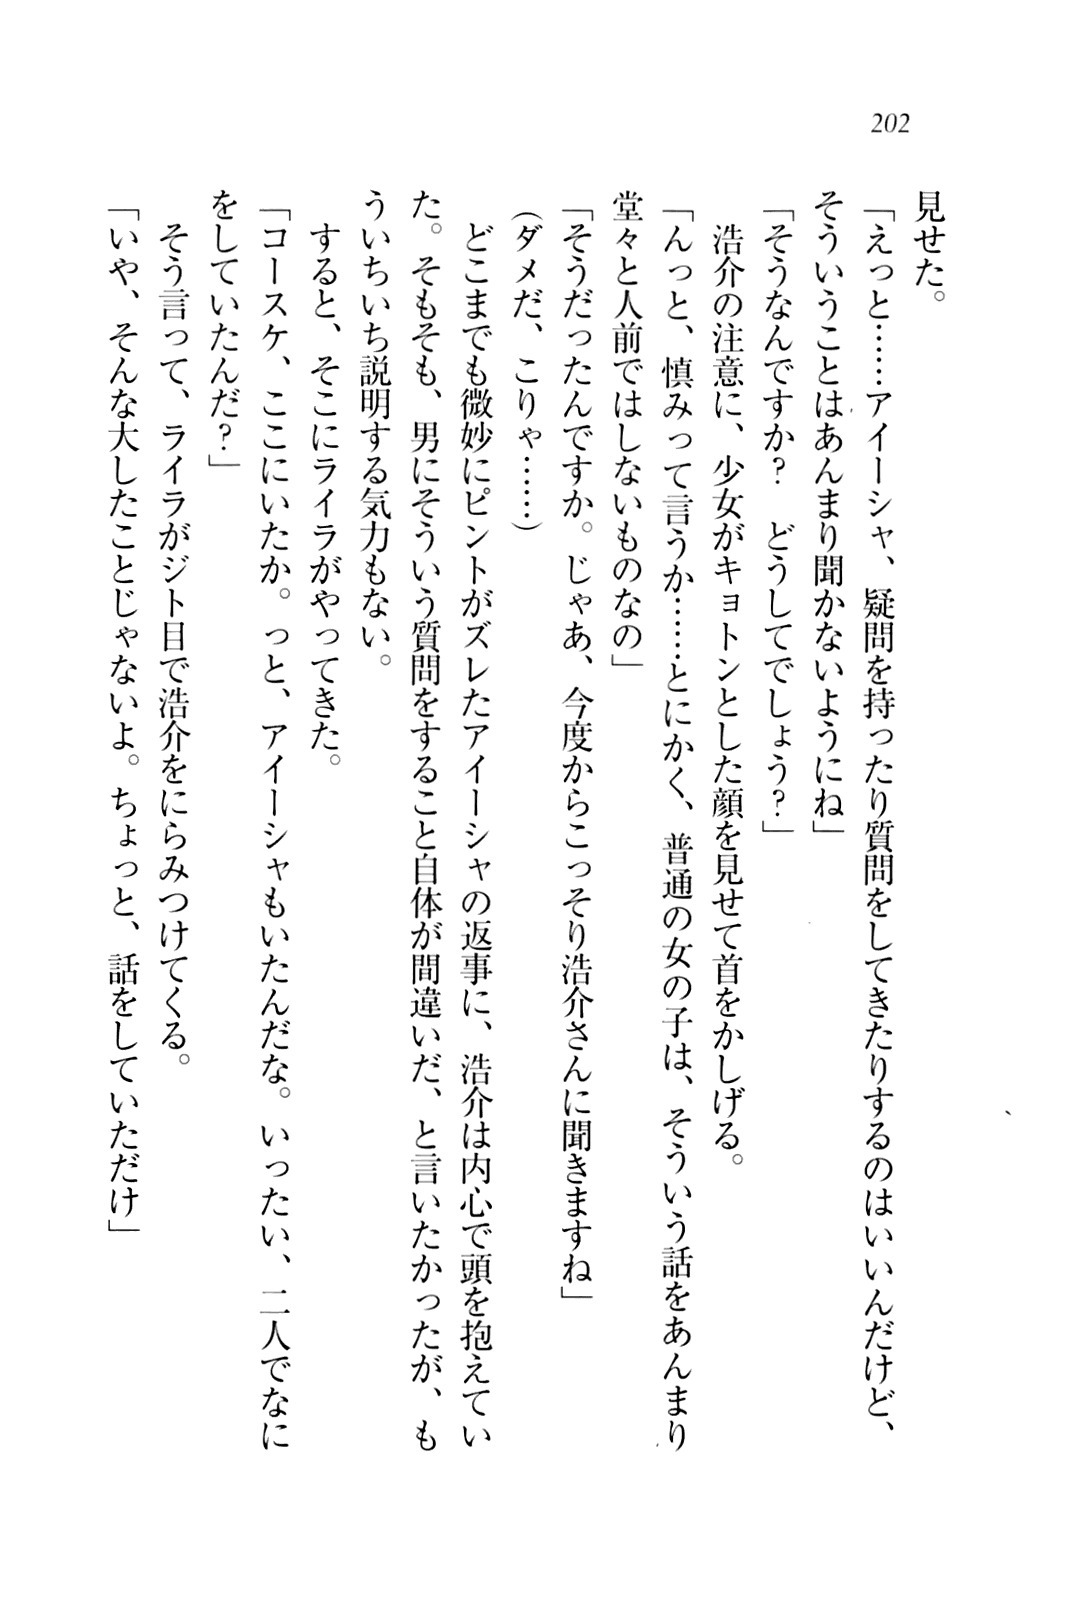 202
見せた。
「えっと……アイーシャ、疑問を持ったり質問をしてきたりするのはいいんだけど、
そういうことはあんまり聞かないようにね」
「そうなんですか？　どうしてでしょう？」
　浩介の注意に、少女がキョトンとした顔を見せて首をかしげる。
「んっと、慎みって言うか……とにかく、普通の女の子は、そういう話をあんまり
堂々と人前ではしないものなの」
「そうだったんですか。じゃあ、今度からこっそり浩介さんに聞きますね」
（ダメだ、こりゃ……）
　どこまでも微妙にピントがズレたアイーシャの返事に、浩介は内心で頭を抱えてい
た。そもそも、男にそういう質問をすること自体が間違いだ、と言いたかったが、も
ういちいち説明する気力もない。
　すると、そこにライラがやってきた。
「コースケ、ここにいたか。っと、アイーシャもいたんだな。いったい、二人でなに
をしていたんだ？」
　そう言って、ライラがジト目で浩介をにらみつけてくる。
「いや、そんな大したことじゃないよ。ちょっと、話をしていただけ」